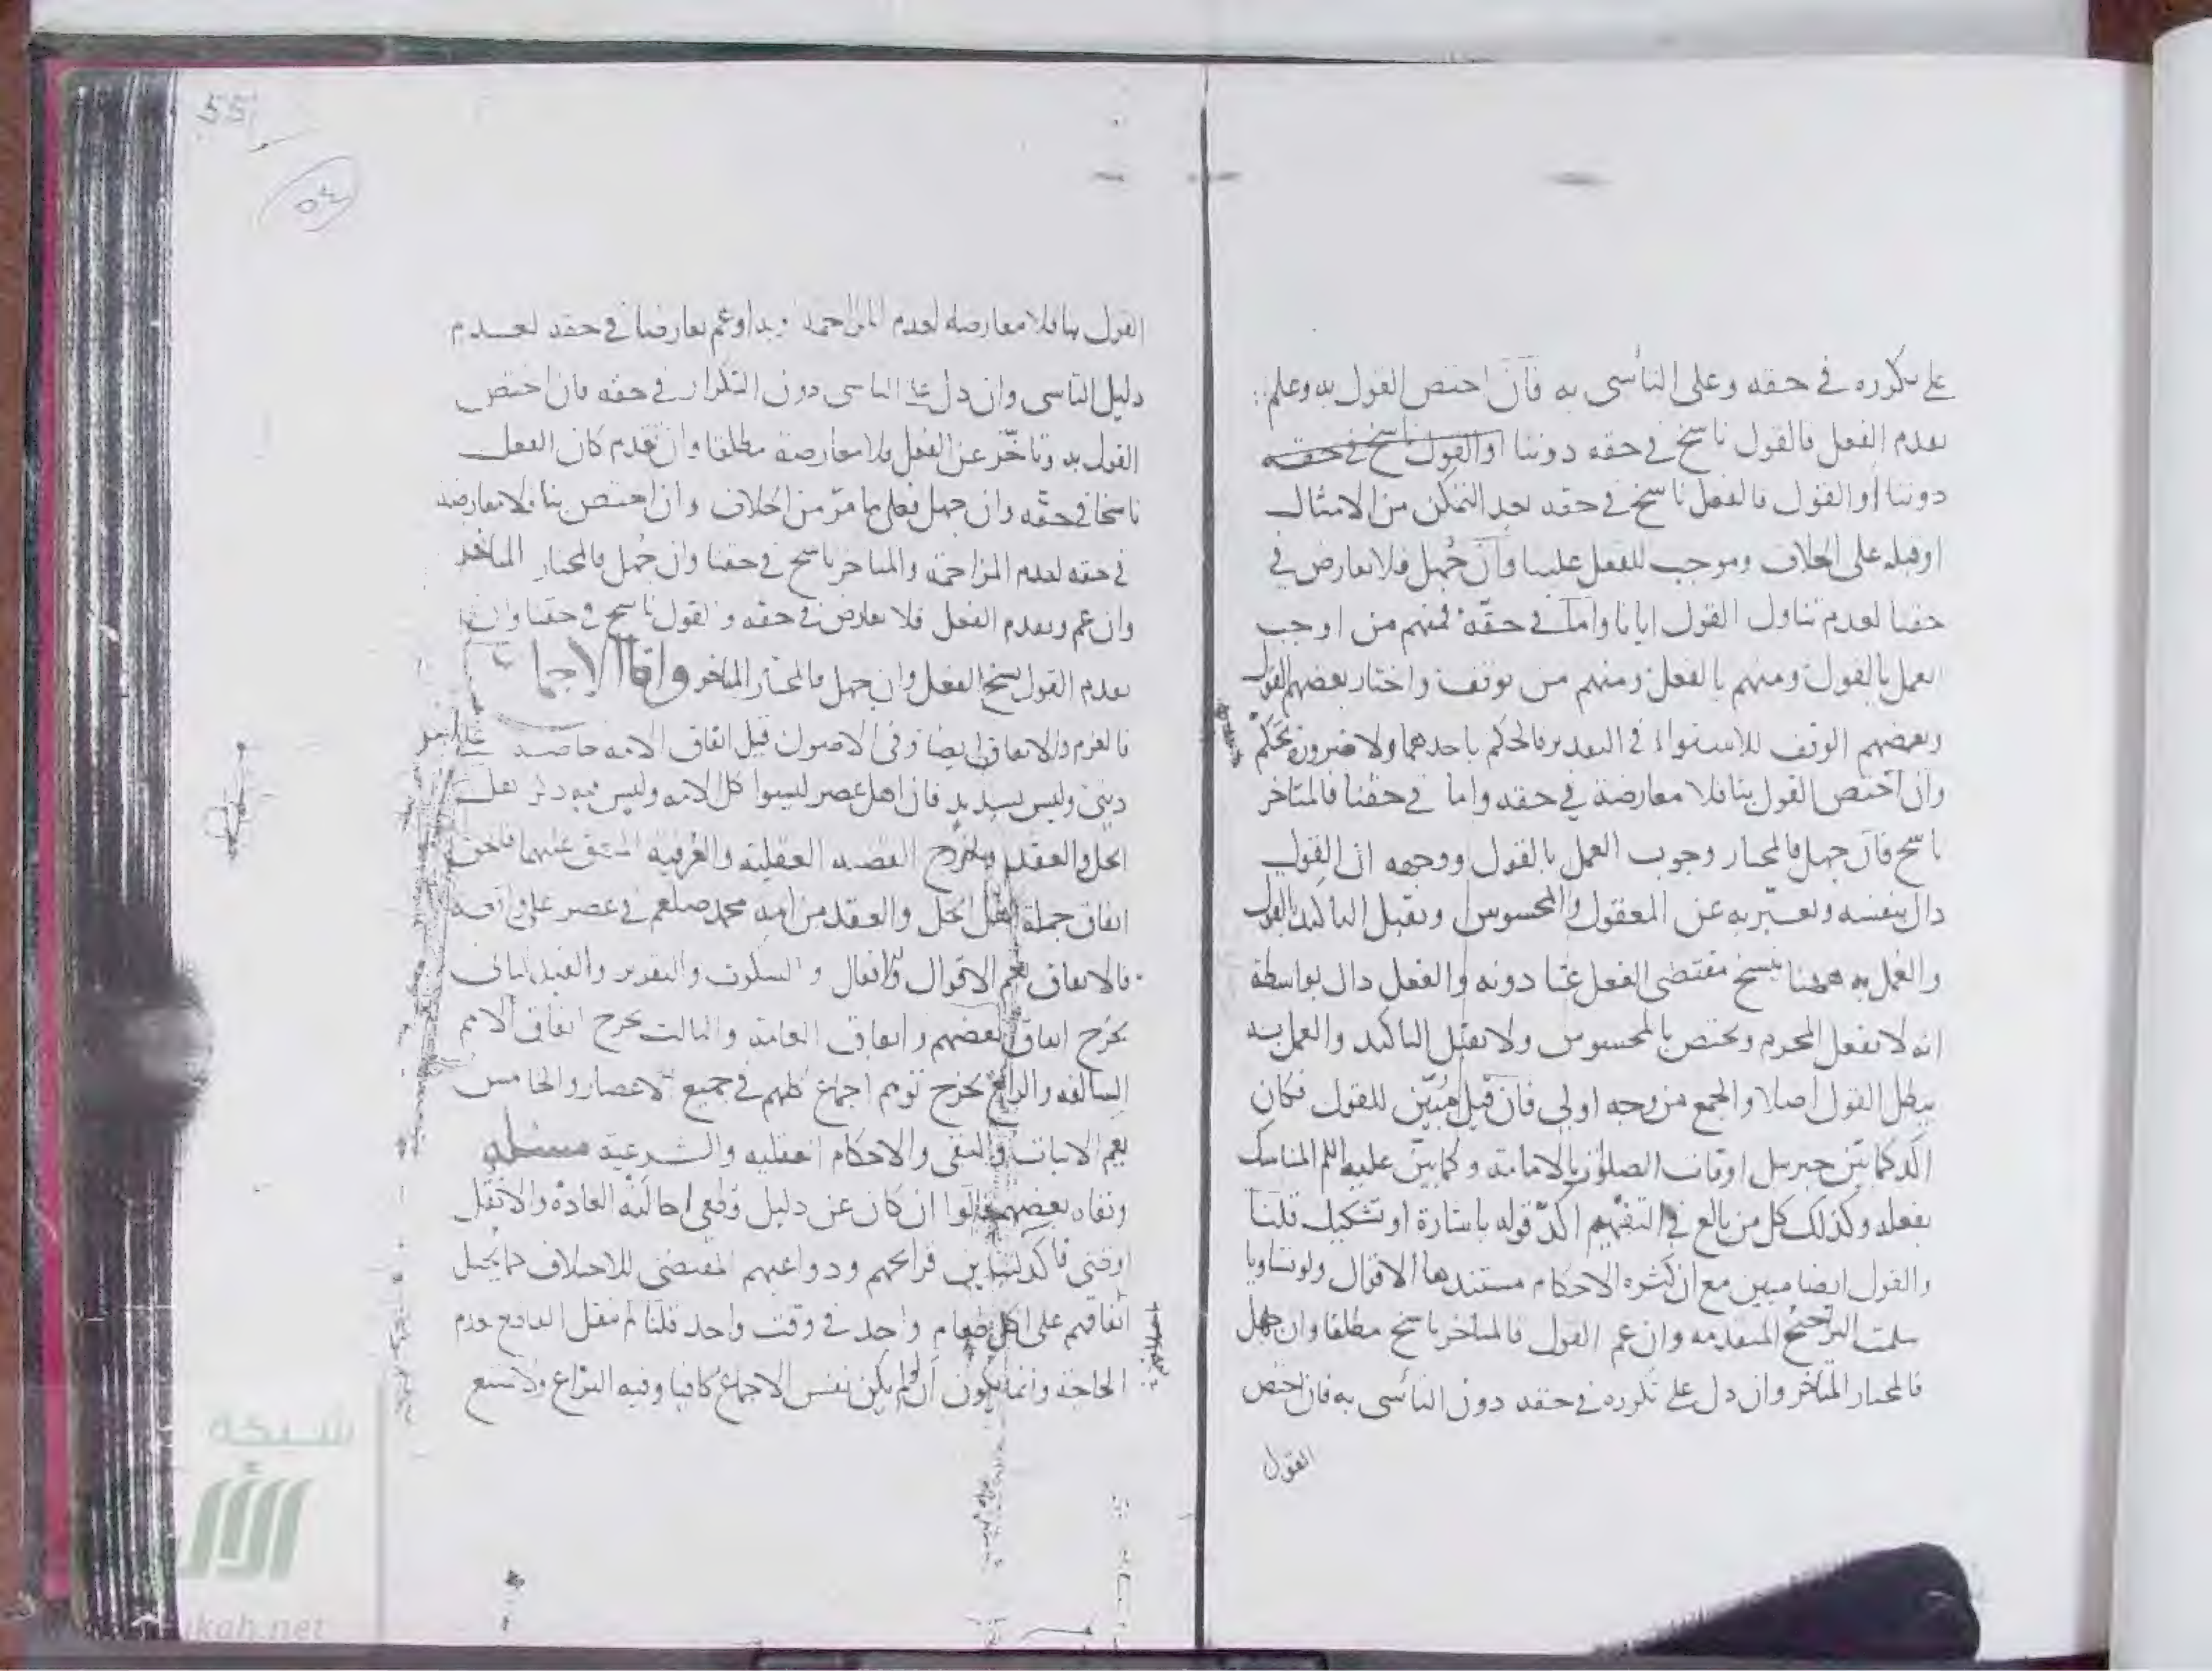 على تكرره في حقه وعلى التأسى به فان اختص القول به وعلم
تقدم الفعل فالقول ناسخ في حقه دوننا او القول ناسخ في حقه
دوننا او القول فالفعل ناسخ في حقه بعد التمكن من الامتثال
او قبله على الخلاف وموجب للفعل علينا فان جُهل فلا تعارض في
حقنا لعدم تناول القول ايانا واما في حقه فمنهم من اوجب
العمل بالقول ومنهم بالفعل ومنهم من توقف واختار بعضهم القول
وبعضهم الوقف للاستواء في التقدير فالحكم باحدهما ولا ضرورة تحكّم
وان اختص القول بنا فلا معارضة في حقه واما في حقنا فالمتاخر
ناسخ فان جهل فالمختار وجوب العمل بالقول ووجهه ان القول
دال بنفسه ويعبّر به عن المعقول والمحسوس ويقبل التاكيد بالقول
والعمل به ههنا ينسخ مقتضى الفعل عنا دونه والفعل دال بواسطة
انه لا يفعل المحرم ويختص بالمحسوس ولا يقبل التاكيد والعمل به
يبطل القول اصلا والجمع من وجه اولى فان قيل مُبيّن للقول فكان
اكد كما بيّن جبريل اوقات الصلوة بالامامة وكما بيّن عليه السلم المناسك
بفعله وكذلك كل من بالغ في التفهيم اكدّ قوله باشارة او تشكيل قلنا
والقول ايضا مبين مع ان كثرة الاحكام مستندها الاقوال ولو تساويا
سلمت التراجيح المتقدمه وان عم القول فالمتاخر ناسخ مطلقا وان جهل
فالمختار المتاخر وان دل على تكرره في حقه دون التأسى به فان اختص
القول
55
٥٤
القول بنا فلا معارضة لعدم المزاحمة وبه او عم تعارضا في حقه لعدم
دليل التاسى وان دل على التاسى دون التكرار في حقه فان اختص
القول به وتاخّر عن الفعل فلا معارضة مطلقا وان تقدم كان الفعل
ناسخا في حقه وان جهل فعلى ما مرّ من الخلاف وان اختص بنا فلا معارضة
في حقه لعدم المزاحمة والمتاخر ناسخ في حقنا وان جُهل فالمختار المتاخر
وان عم وتقدم الفعل فلا تعارض في حقه والقول ناسخ في حقنا وان
تقدم القول نسخ الفعل وان جهل فالمختار المتاخر واما الاجماع
فالعزم والاتفاق ايضا وفى الاصول قيل اتفاق الامه خاصة على امر
دينى وليس بسديد فان اهل عصر ليسوا كل الامه وليس فيه ذكر اهل
الحل والعقد ويخرج القضيه العقلية والعُرفية المتفق عليهما فالحق
اتفاق جملة اهل الحل والعقد من امة محمد صلعم في عصر على واقعة
فالاتفاق يعم الاقوال والافعال والسكوت والتقرير والقيد الثانى
يخرج اتفاق بعضهم واتفاق العامة والثالث يخرج اتفاق الامم
السالفه والرابع يخرج توهم اجماع كلهم في جميع الاعصار والخامس
يعم الاثبات والنفى والاحكام العقليه والشرعية مسئله
ونفاه بعضهم قالوا ان كان عن دليل قطعى احالت العادة والا نقل
او ظنى فاكد لتباين قرائحهم ودواعيهم المقتضى للاختلاف كما يحيل
اتفاقهم على اكل طعام واحد في وقت واحد قلنا لم ينقل القاطع لعدم
الحاجة وانما يكون ان لو لم يكن نفس الاجماع كافيا وفيه النزاع ولا يمتنع
شبكة
ukah.net